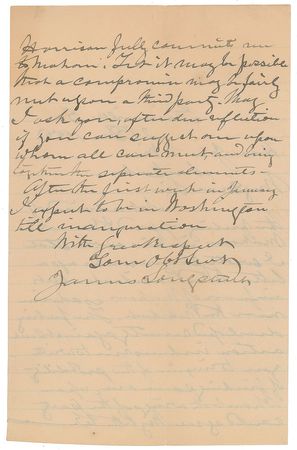 Harrison fully commit me
to Mahone. Yet it may be possible
that a compromise may be fairly
met upon a third party. May
I ask you, after due reflection
if you can suggest one upon
whom all can meet, and bring
together the separate elements.
After the first week in January
I expect to be in Washington
till inauguration
With Great Respect
Your Obt Servt
James Longstreet